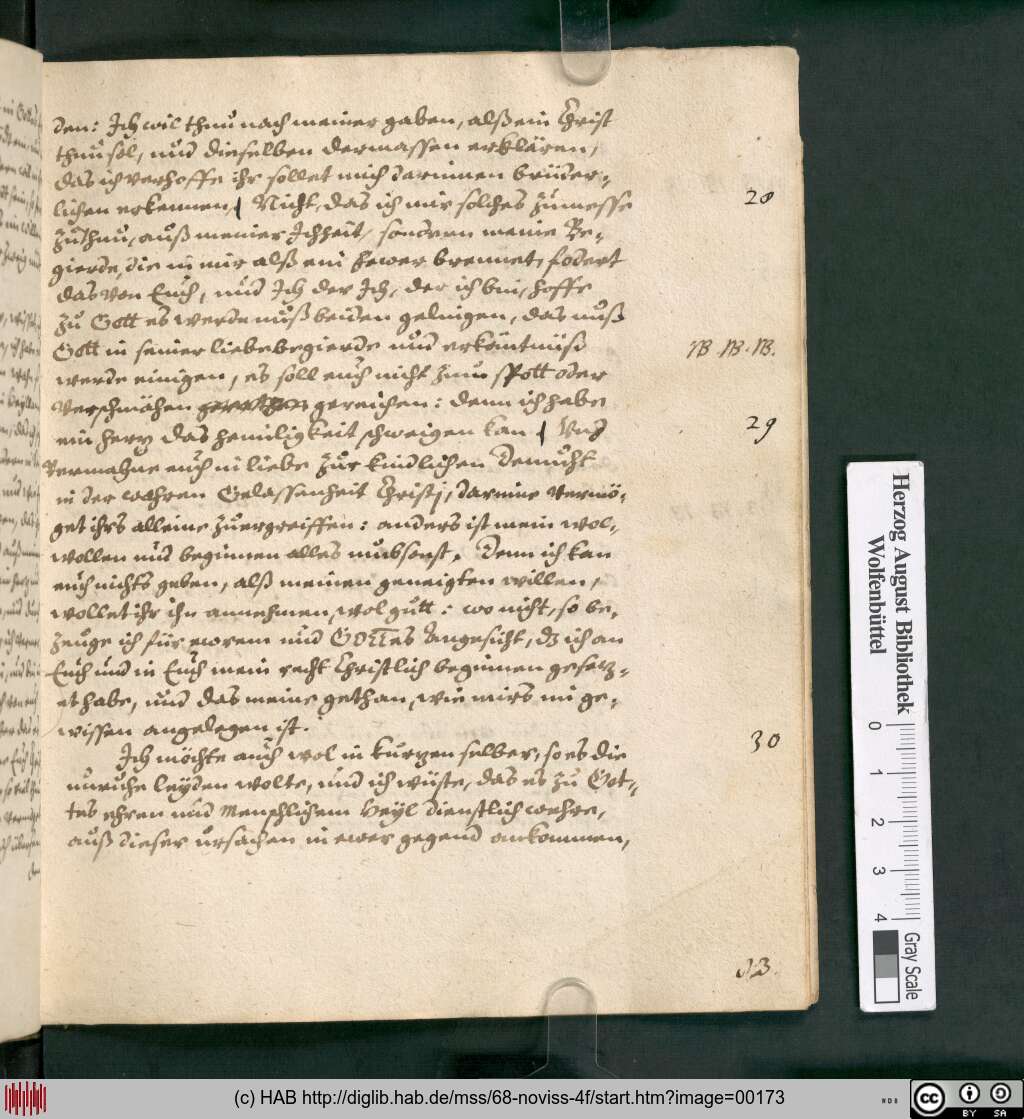 den: Ich wil thun nach meiner gaben, alß ein Christ
thun sol, und dieselben dermassen erklären,
das ich verhoffe ihr sollet mich darinnen brüder-
lichen erkennen, Nicht, das ich mir solches zumesse
28
zuthun, auß meiner Ichheit, sondern meine Be-
gierde, die in mir alß ein fewer brennet, fodert
das von Euch, und Ich der Ich, der ich bin, hoffe
zu Gott es werde muß beiden gelingen, das muß
Gott in seiner liebebegierde und erkäntnüß
NB. NB. NB.
werde einigen, es soll euch nicht zum spott oder
verschmähen gereichen: denn ich habe
ein hertz das heimligkeit schweigen kan Und
29
Vermahne euch in liebe zur kindlichen Demuht
in der wahren Gelassenheit Christj, darinne vermö-
get ihrs alleine zuergreiffen: anders ist mein wol-
wollen und beginnen alles umbsonst. Denn ich kan
euch nichts geben, alß meinen geneigten willen,
wollet ihr ihn annehmen, wol gutt: wo nicht, so be-
zeuge ich für ewrem und GOTTES Angesicht, dz ich an
Euch und in Euch mein recht Christlich beginnen gesetz-
et habe, und das meine gethan, wie mirs im ge-
wissen angelegen ist.
Ich möchte auch wol in kurtzen selber, so es die
30
unruhe leyden wolte, und ich wüste, das es zu Got-
tes ehren und Menschlichem Heyl dienstlich wehre,
auß dieser ursachen in ewer gegend ankommen,
Herzog August Bibliothek
Wolfenbüttel
0 1 2 3 4
Gray Scale
(c) HAB http://diglib.hab.de/mss/68-noviss-4f/start.htm?image=00173
cc BY SA